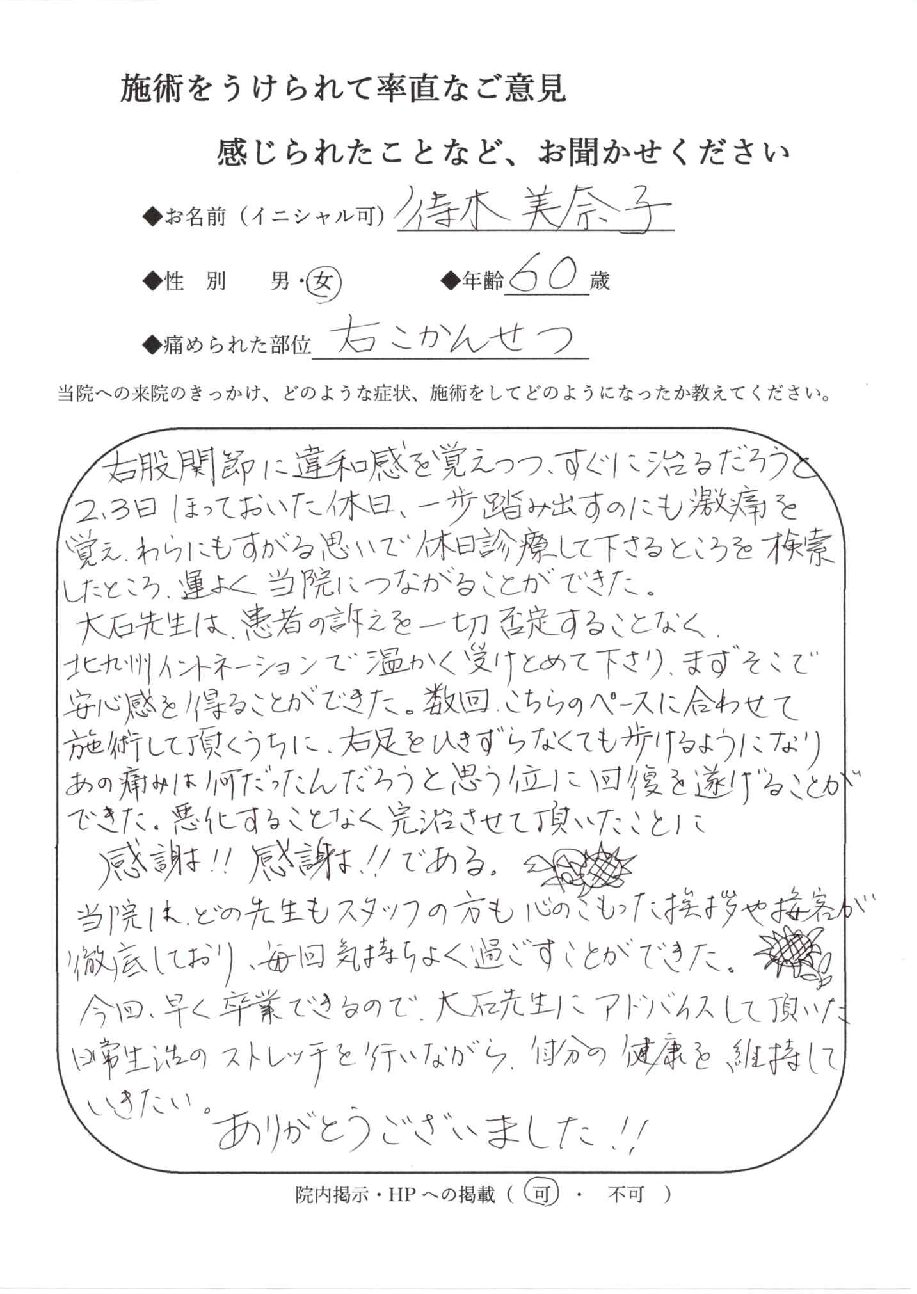 施術をうけられて率直なご意見
感じられたことなど、お聞かせください
◆お名前（イニシャル可）待木 美奈子
◆性 別 男・女 ◆年齢 60 歳
◆痛められた部位 右こかんせつ
当院への来院のきっかけ、どのような症状、施術をしてどのようになったか教えてください。
右股関節に違和感を覚えつつ、すぐに治るだろうと
2、3日ほっておいた休日、一歩踏み出すのにも激痛を
覚え、わらにもすがる思いで休日診療して下さるところを検索
したところ、運よく当院につながることができた。
大石先生は、患者の訴えを一切否定することなく、
北九州イントネーションで温かく受けとめて下さり、まずそこで
安心感を得ることができた。数回、こちらのペースに合わせて
施術して頂くうちに、右足をひきずらなくても歩けるようになり
あの痛みは何だったんだろうと思う位に回復を遂げることが
できた。悪化することなく完治させて頂いたことに
感謝!! 感謝!!である。
当院は、どの先生もスタッフの方も心のこもった挨拶や接客が
徹底しており、毎回気持ちよく過ごすことができた。
今回、早く卒業できるので、大石先生にアドバイスして頂いた
日常生活のストレッチを行いながら、自分の健康を維持して
いきたい。
ありがとうございました!!
院内掲示・HPへの掲載（ 可 ・ 不可 ）